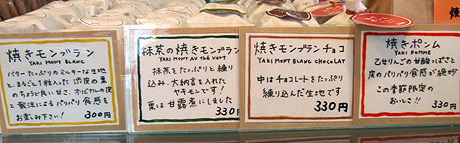 焼きモンブラン
YAKI MONT BLANC
バターたっぷりのミルキーな生地と
お楽しみ下さい!
300円
抹茶の焼きモンブラン
YAKI MONT AU THE VERT
抹茶をたっぷりと練り
込み、大納言を入れた
ヤキモンです!
栗は甘露煮にしました
330円
焼きモンブランチョコ
YAKI MONT BLANC CHOCOLAT
中はチョコレートをたっぷり
練り込んだ生地です
330円
焼きポンム
YAKI POMME
乙女りんごの甘酸っぱさと
皮のパリパリ食感が絶妙
この季節限定の
おいしさ!!
330円